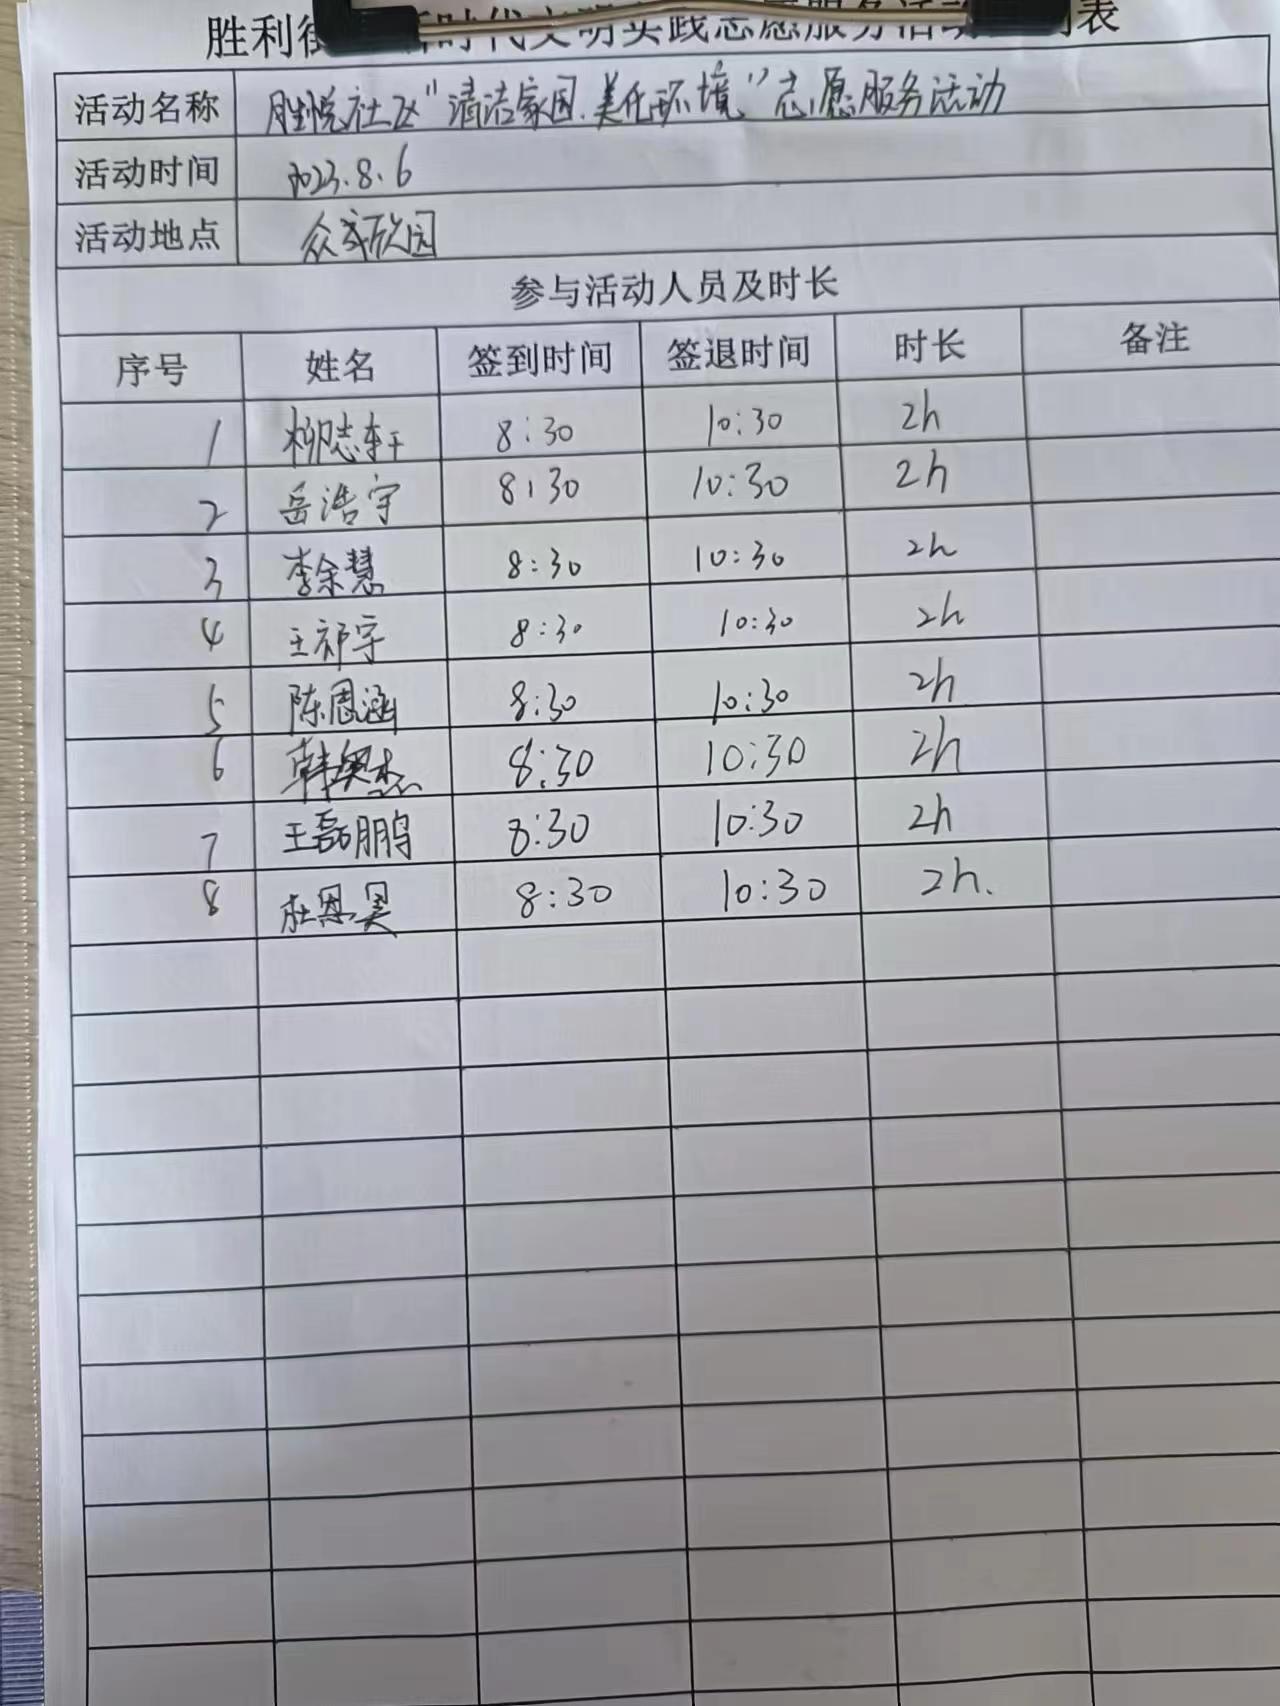 胜利街 时代文明实践志愿服务活动 表
活动名称 胜悦社区“清洁家园.美化环境”志愿服务活动
活动时间 2023.8.6
活动地点 众成欣园
参与活动人员及时长
序号 姓名 签到时间 签退时间 时长 备注
1 柳志轩 8:30 10:30 2h
2 岳浩宇 8:30 10:30 2h
3 李余慧 8:30 10:30 2h
4 王祁宇 8:30 10:30 2h
5 陈思涵 8:30 10:30 2h
6 韩奥杰 8:30 10:30 2h
7 王磊鹏 8:30 10:30 2h
8 杜恩昊 8:30 10:30 2h.